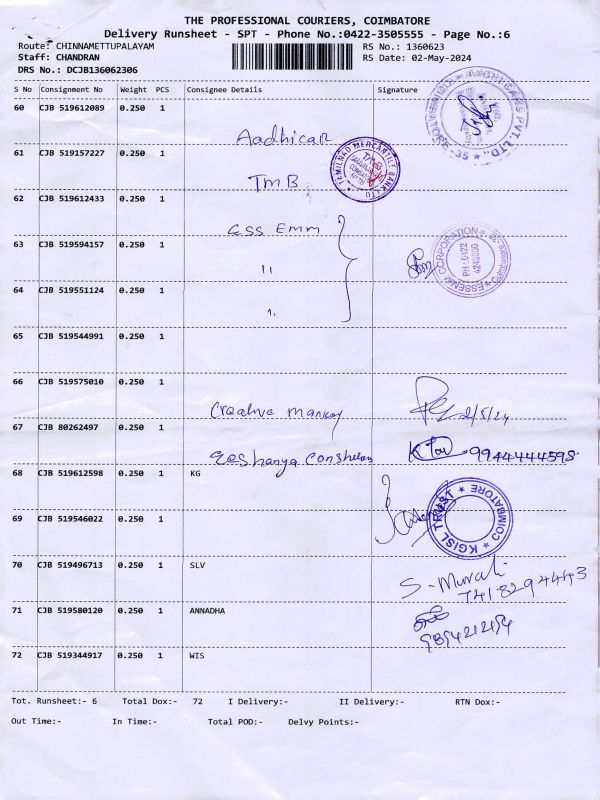 THE PROFESSIONAL COURIERS, COIMBATORE
Delivery Runsheet - SPT - Phone No.:0422-3505555 - Page No.:6
Route: CHINNAMETTUPALAYAM RS No.: 1360623
Staff: CHANDRAN RS Date: 02-May-2024
DRS No.: DCJB136062306
S No Consignment No Weight PCS Consignee Details Signature
60 CJB 519612089 0.250 1
Aadhicar
61 CJB 519157227 0.250 1
TAMILNAD MERCANTILE BANK LTD
TMB
62 CJB 519612433 0.250 1
ESS Emm
63 CJB 519594157 0.250 1
ESSEMM CORPORATION
PH : 0422
"
64 CJB 519551124 0.250 1
"
65 CJB 519544991 0.250 1
66 CJB 519575010 0.250 1
Creative 2/5/24
67 CJB 80262497 0.250 1
Eeshanya 9944444598
68 CJB 519612598 0.250 1 KG
KGISL TRUST COIMBATORE
69 CJB 519546022 0.250 1
70 CJB 519496713 0.250 1 SLV
S-Murali
7418294443
71 CJB 519580120 0.250 1 ANNADHA
72 CJB 519344917 0.250 1 WIS
Tot. Runsheet:- 6 Total Dox:- 72 I Delivery:- II Delivery:- RTN Dox:-
Out Time:- In Time:- Total POD:- Delvy Points:-